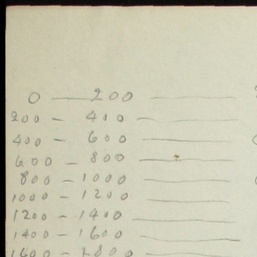 0 — 200 —
200 — 400 —
400 — 600 —
600 — 800 —
800 — 1000 —
1000 — 1200 —
1200 — 1400 —
1400 — 1600 —
1600 — 1800 —